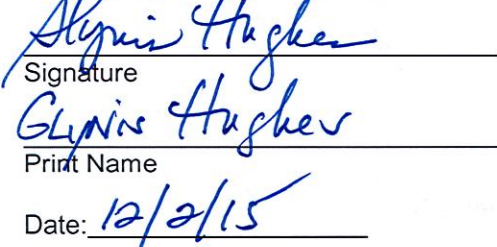 Glynis Hughes
Signature
Glynis Hughes
Print Name
Date: 12/2/15